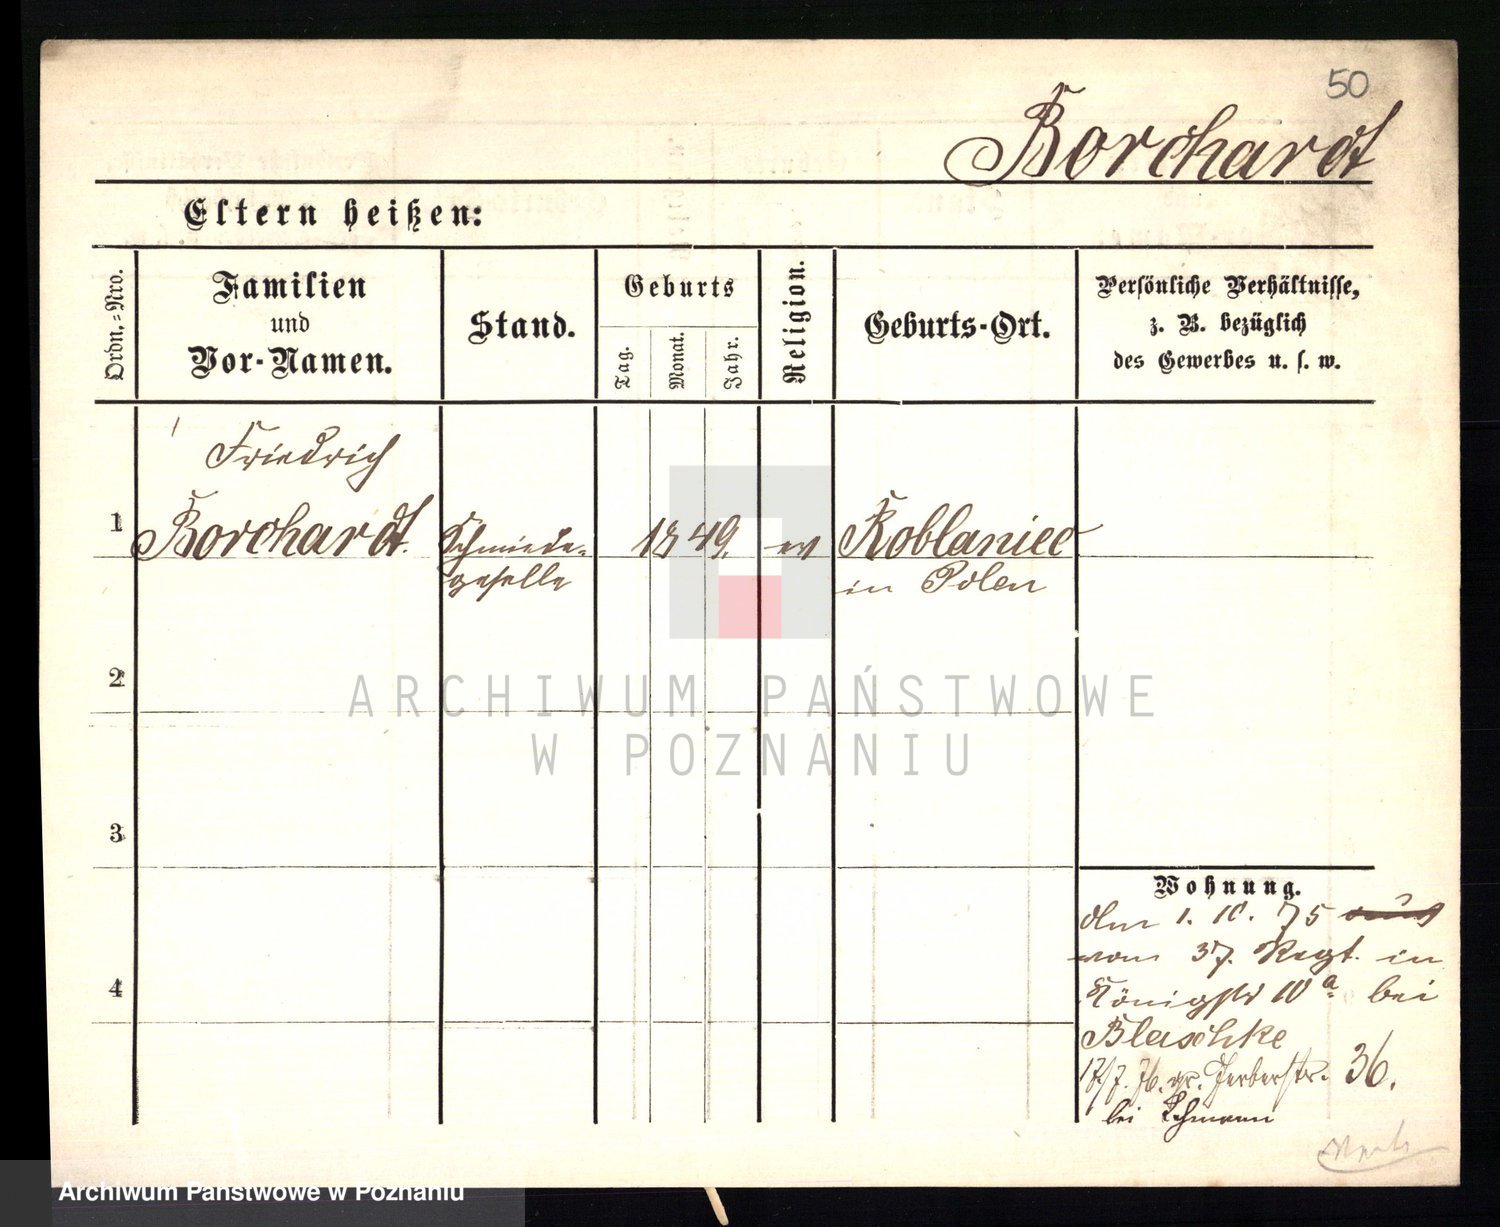 50
Borchardt
Eltern heißen:
Ordn.-Nro.
Familien
und
Vor-Namen.
Stand.
Geburts
Tag.
Monat.
Jahr.
Religion.
Geburts-Ort.
Persönliche Verhältnisse,
z. B. bezüglich
des Gewerbes u. s. w.
Friedrich
1 Borchardt. Schmiede- 1849. ev Koblaniec
geselle in Polen
2
ARCHIWUM PAŃSTWOWE
W POZNANIU
3
4
Wohnung.
den 1. 10. 75
vom 37. Regt. in
Königstr 10a. bei
Blaschke
17/7. 76. gr. Gerberstr. 36.
bei
Archiwum Państwowe w Poznaniu